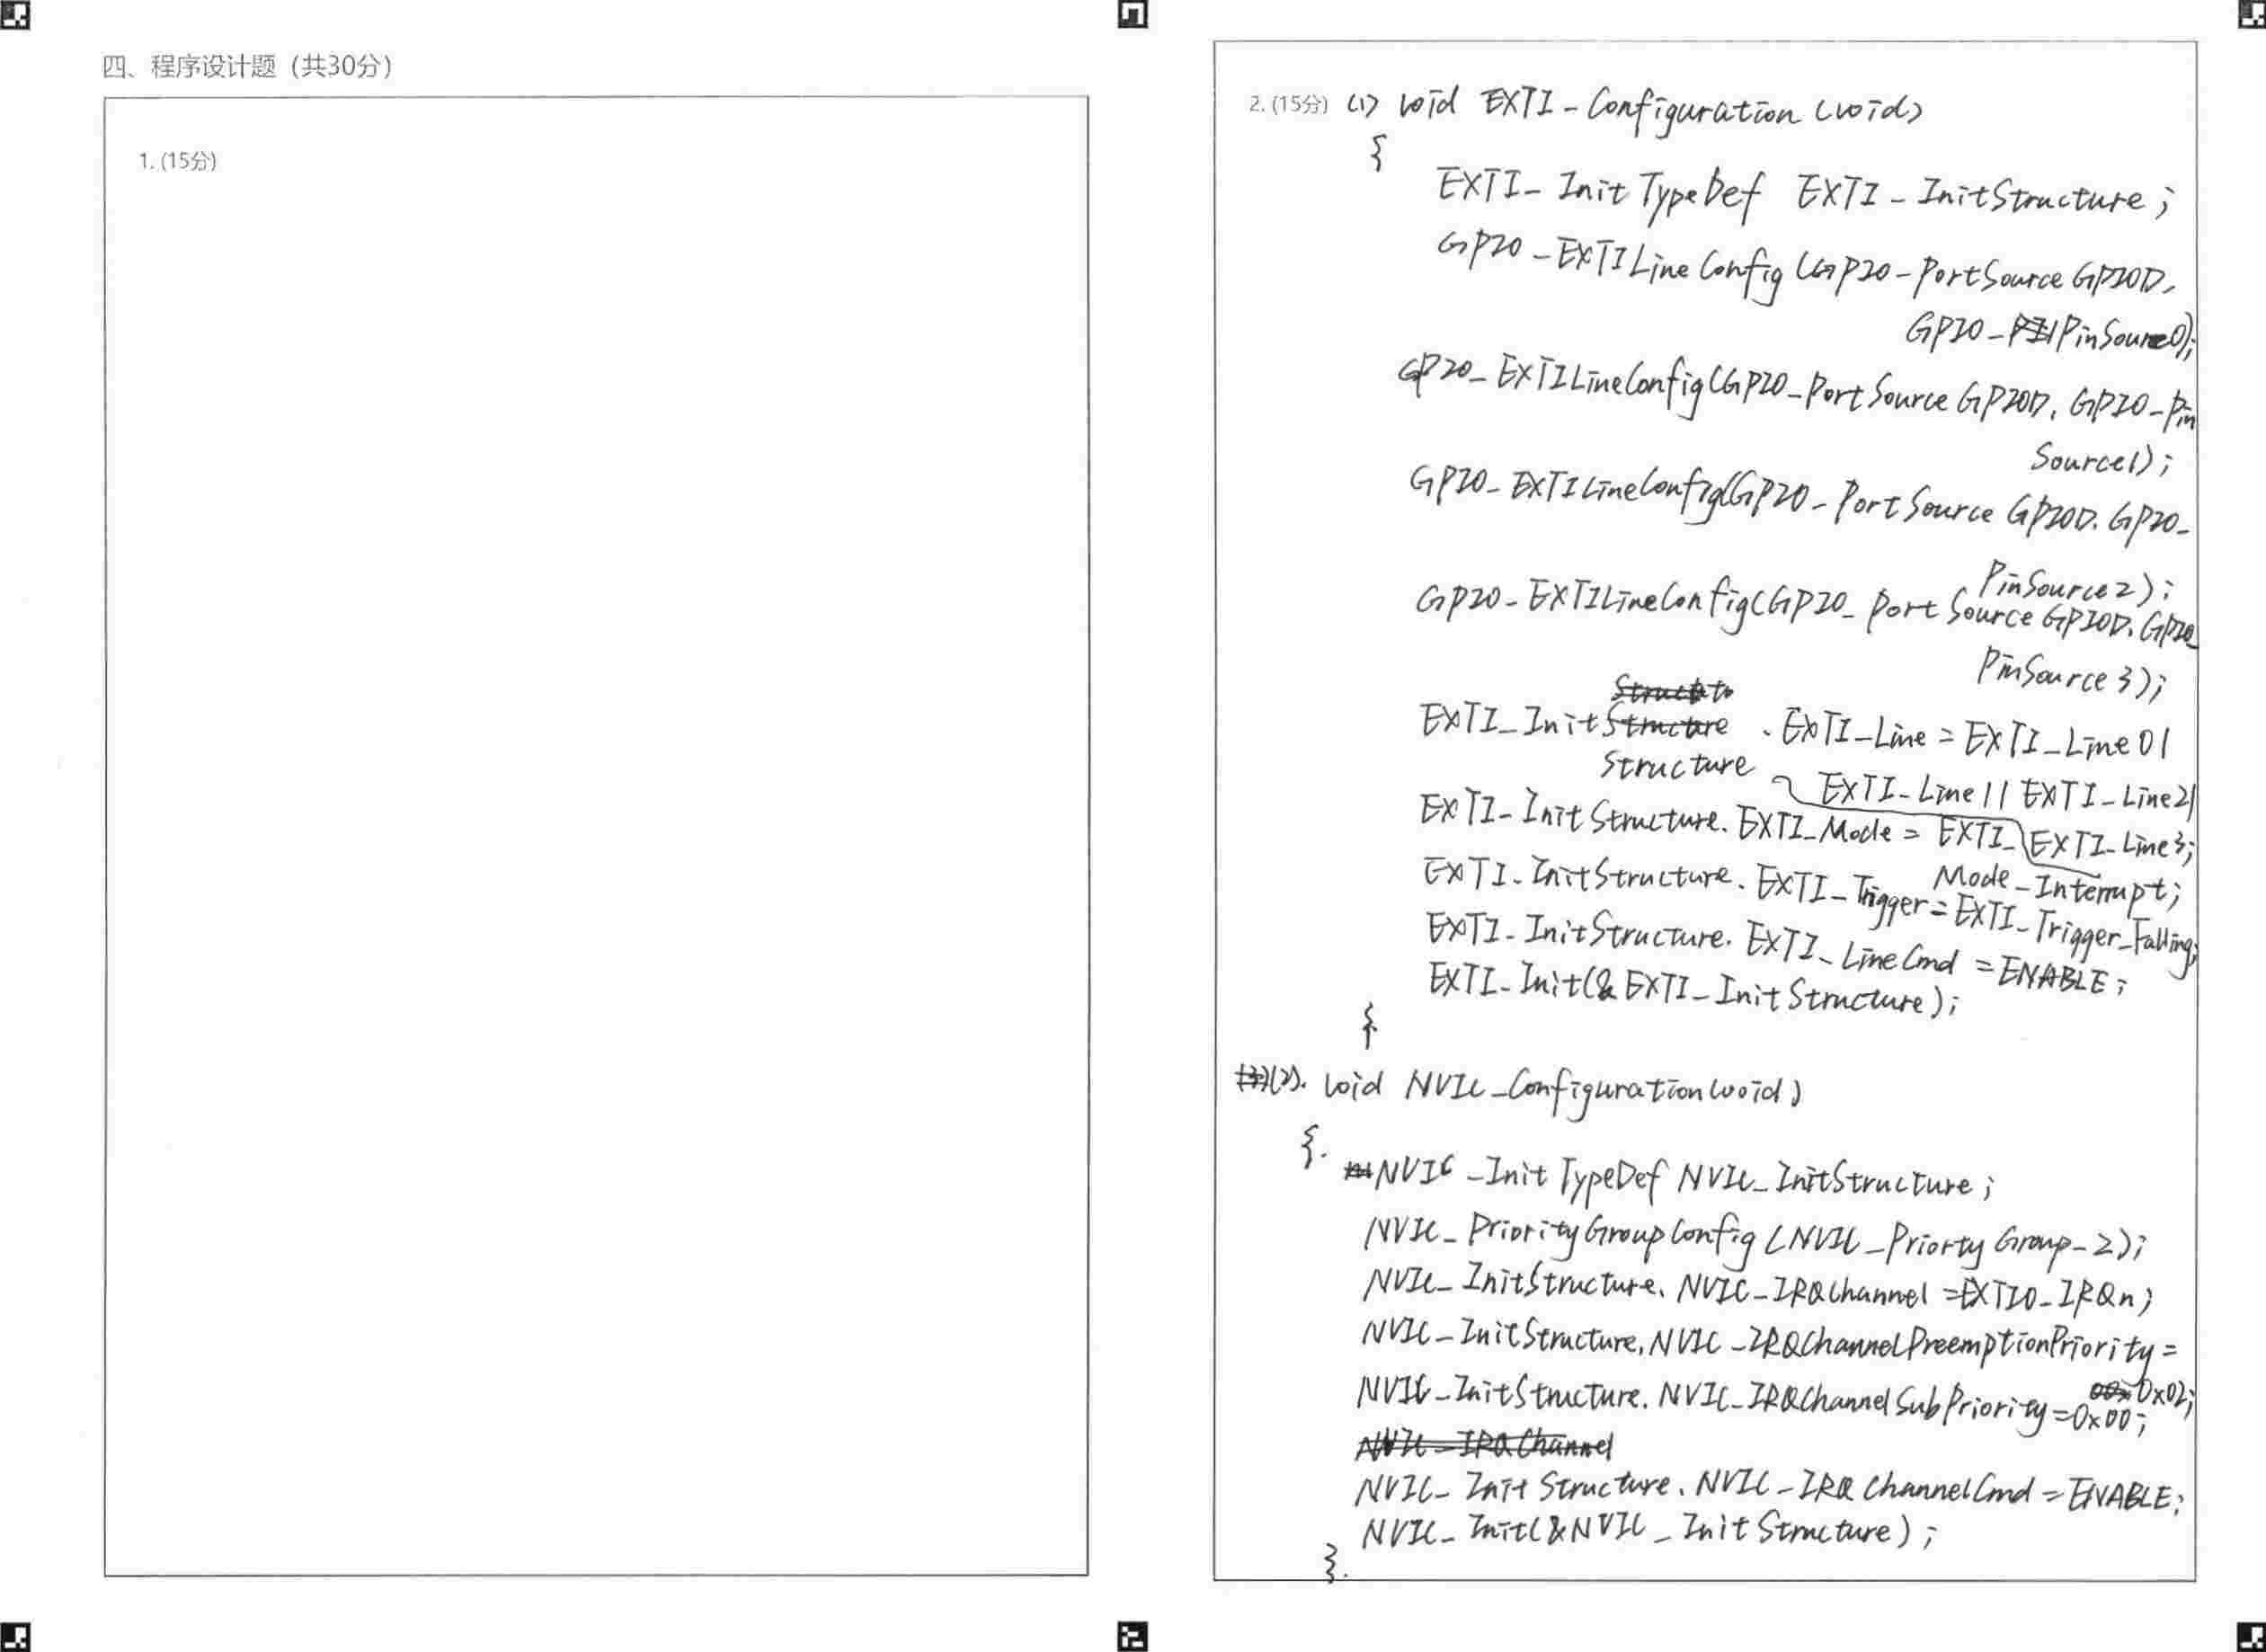 四、程序设计题（共30分）
1. (15分)
2. (15分) (1) void EXTI_Configuration (void)
{
EXTI_InitTypeDef EXTI_InitStructure;
GPIO_EXTILineConfig (GPIO_PortSourceGPIOD,
GPIO_PinSource0);
GPIO_EXTILineConfig(GPIO_PortSourceGPIOD, GPIO_Pin
Source1);
GPIO_EXTILineConfig(GPIO_PortSourceGPIOD, GPIO_
PinSource2);
GPIO_EXTILineConfig(GPIO_PortSourceGPIOD, GPIO_
PinSource3);
EXTI_InitStructure.EXTI_Line = EXTI_Line0|
EXTI_Line1|EXTI_Line2|
EXTI_Line3;
EXTI_InitStructure.EXTI_Mode = EXTI_
Mode_Interrupt;
EXTI_InitStructure.EXTI_Trigger=EXTI_Trigger_Falling;
EXTI_InitStructure.EXTI_LineCmd =ENABLE;
EXTI_Init(&EXTI_InitStructure);
}
(2). void NVIC_Configuration(void)
{.
NVIC_InitTypeDef NVIC_InitStructure;
NVIC_PriorityGroupConfig (NVIC_PriortyGroup_2);
NVIC_InitStructure.NVIC_IRQChannel =EXTI0_IRQn;
NVIC_InitStructure.NVIC_IRQChannelPreemptionPriority=
0x02;
NVIC_InitStructure.NVIC_IRQChannelSubPriority=0x00;
NVIC_IRQChannel
NVIC_InitStructure.NVIC_IRQChannelCmd =ENABLE;
NVIC_Init(&NVIC_InitStructure);
}.